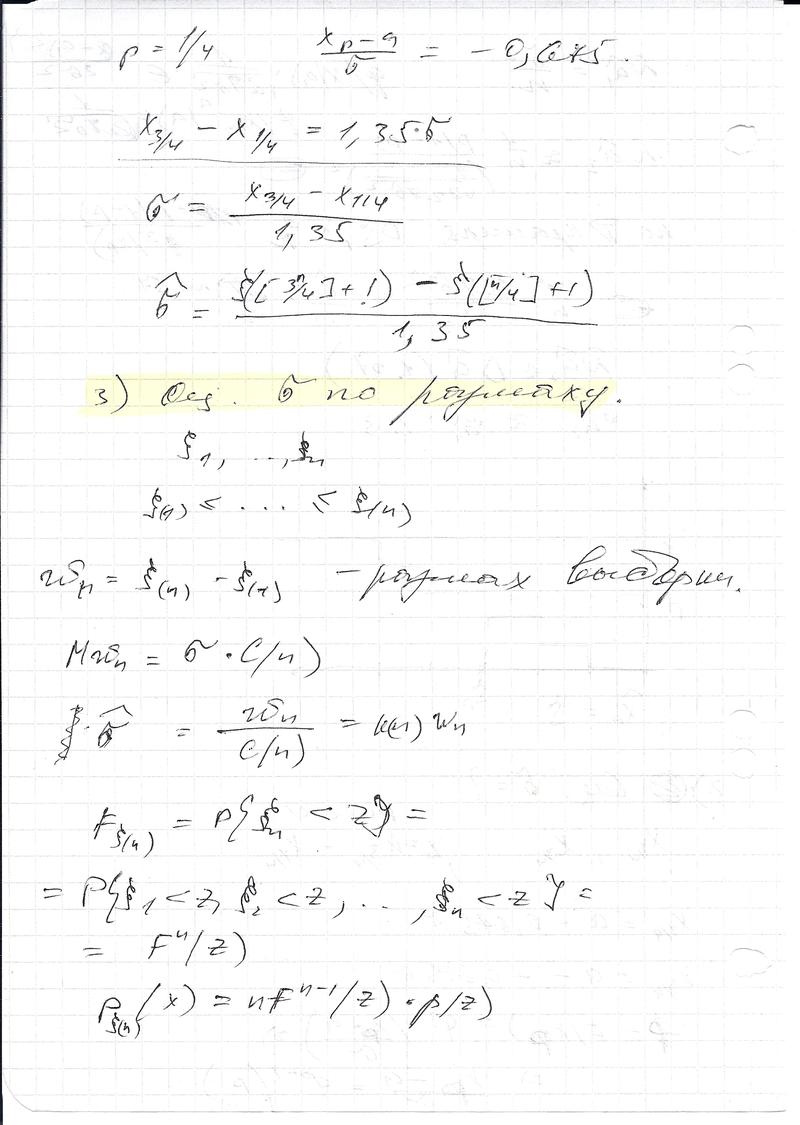 p = 1/4 (x_p − a)/σ = −0,675.
x_{3/4} − x_{1/4} = 1,35·σ
σ = (x_{3/4} − x_{1/4})/1,35
σ̂ = (ξ([3n/4]+1) − ξ([n/4]+1))/1,35
3) Оц. σ по размаху.
ξ_1, ..., ξ_n
ξ_(1) ≤ ... ≤ ξ_(n)
w_n = ξ_(n) − ξ_(1) – размах выборки.
Mw_n = σ · C(n)
σ̂ = w_n/C(n) = k(n) w_n
F_{ξ(n)} = P{ξ_n < z} =
= P{ξ_1 < z, ξ_2 < z, ..., ξ_n < z} =
= F^n(z)
P_{ξ(n)}(x) = nF^{n−1}(z) · p(z)